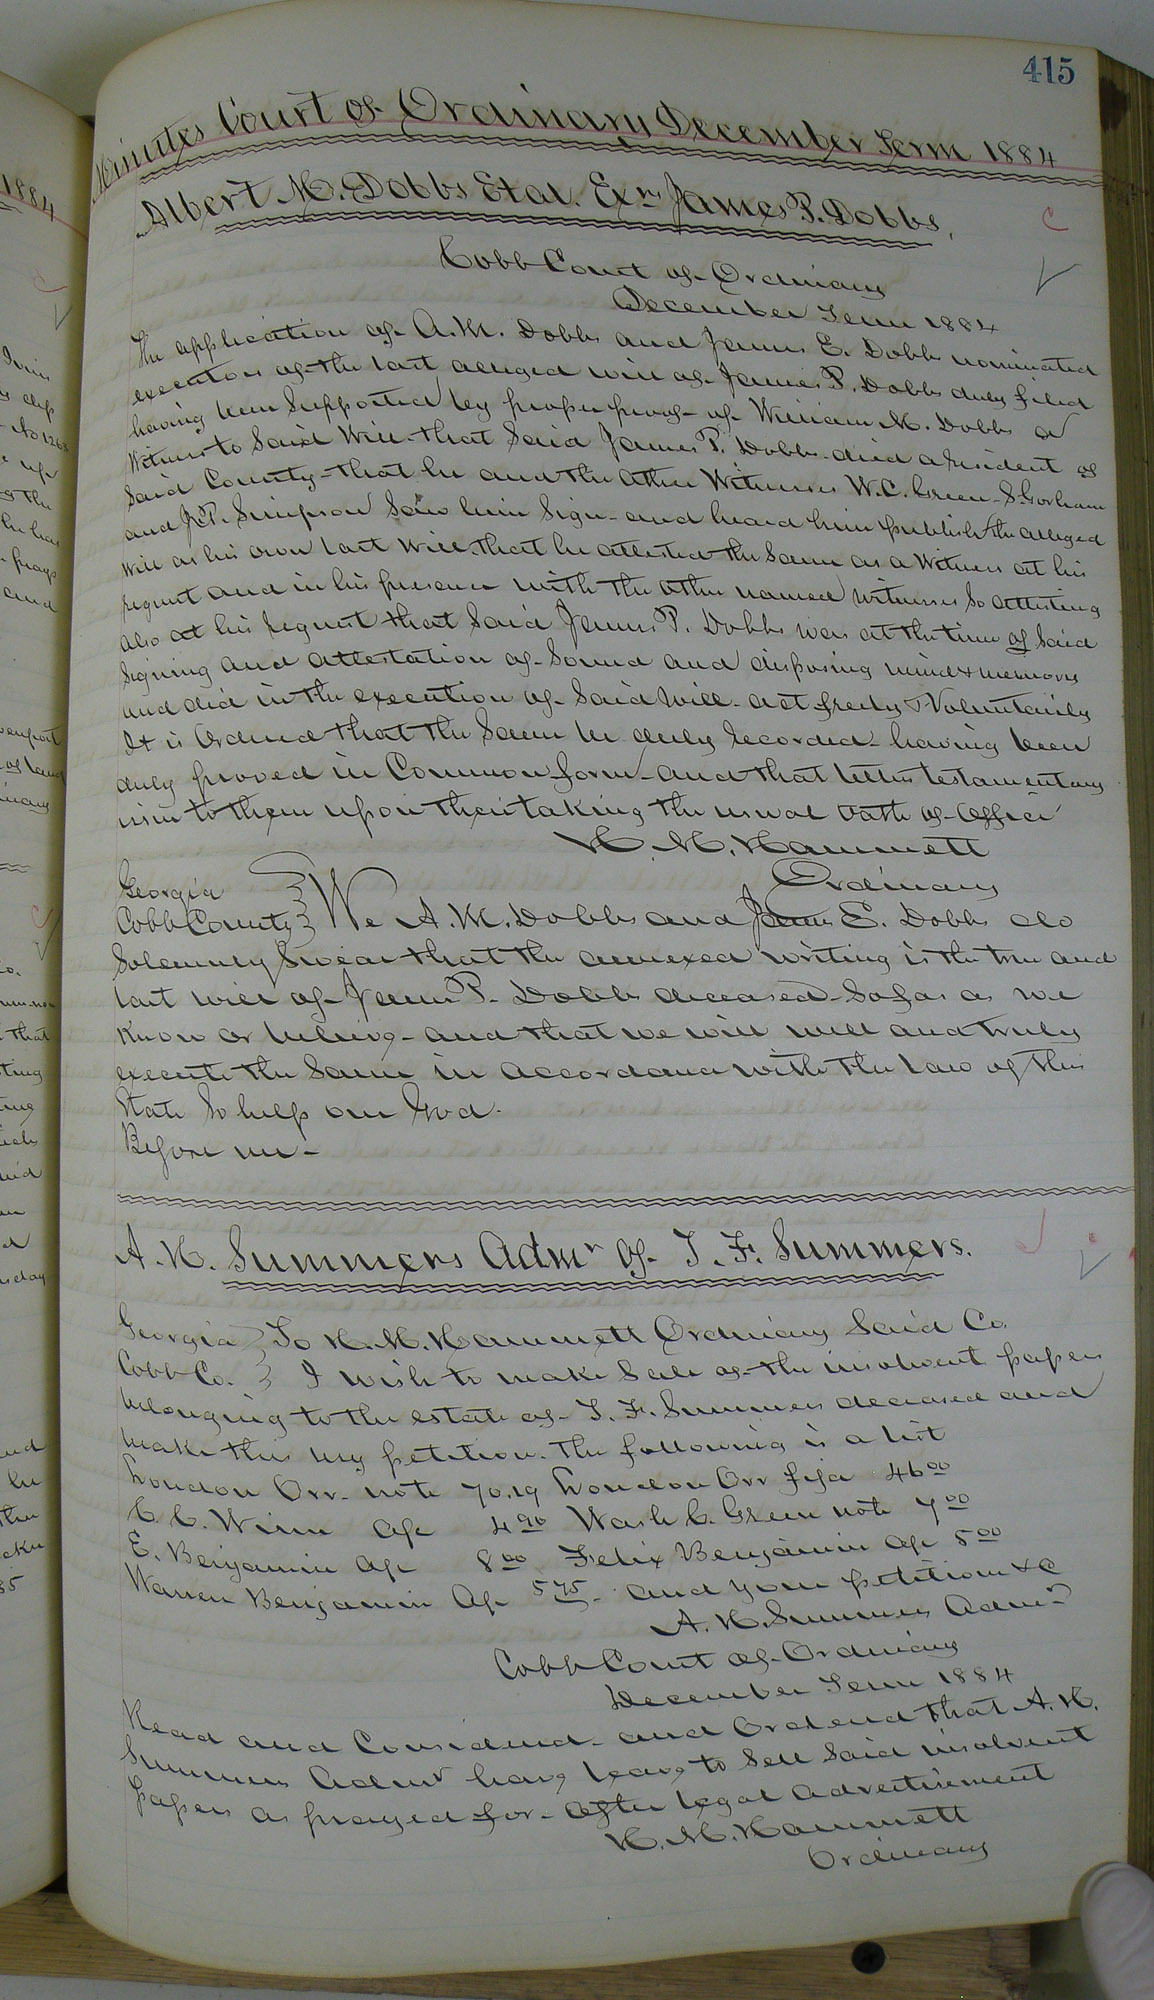 415
Minutes Court of Ordinary December Term 1884
Albert M. Dobbs Etal. Exrs James P. Dobbs.
Cobb Court of Ordinary
December Term 1884
The application of A.M. Dobbs and James E. Dobbs nominated
executors of the last alleged will of James P. Dobbs duly filed
having been Supported by proper proof of William M. Dobbs a
Witness to Said Will that Said James P. Dobbs died a resident of
Said County that he and the other Witnesses W.C. Green S. Gorham
and J.P. Simpson Saw him Sign and heard him publish the alleged
will as his own last Will that he attested the Same as a Witness at his
request and in his presence with the other named witnesses So attesting
also at his request that Said James P. Dobbs was at the time of Said
Signing and attestation of Sound and disposing mind & memory
and did in the execution of Said Will act freely & Voluntarily
It is Ordered that the Same be duly recorded having been
duly proved in Common form and that letters testamentary
issue to them upon their taking the usual oath of office
H. M. Hammett
Ordinary
Georgia
Cobb County We A. M. Dobbs and James E. Dobbs do
Solemnly Swear that the annexed writing is the true and
last will of James P. Dobbs deceased So far as we
Know or believe and that we will well and truly
execute the Same in accordance with the law of this
State So help our God.
Before me
A. H. Summers Admr of T. F. Summers.
Georgia To H. M. Hammett Ordinary Said Co.
Cobb Co. I wish to make Sale of the insolvent papers
belonging to the estate of T. F. Summers deceased and
make this my petition. The following is a list
London Orr note 70.19 London Orr fifa 46 00
C. C. Winn a/c 4 90 Wash C. Green note 7 00
E. Benjamin a/c 8 00 Felix Benjamin a/c 5 00
Warren Benjamin a/c 5 75 and your petition &c
A. H. Summers Admr
Cobb Court of Ordinary
December Term 1884
Read and Considered and Ordered that A. H.
Summers Admr have leave to Sell Said insolvent
papers as prayed for after legal advertisement
H. M. Hammett
Ordinary